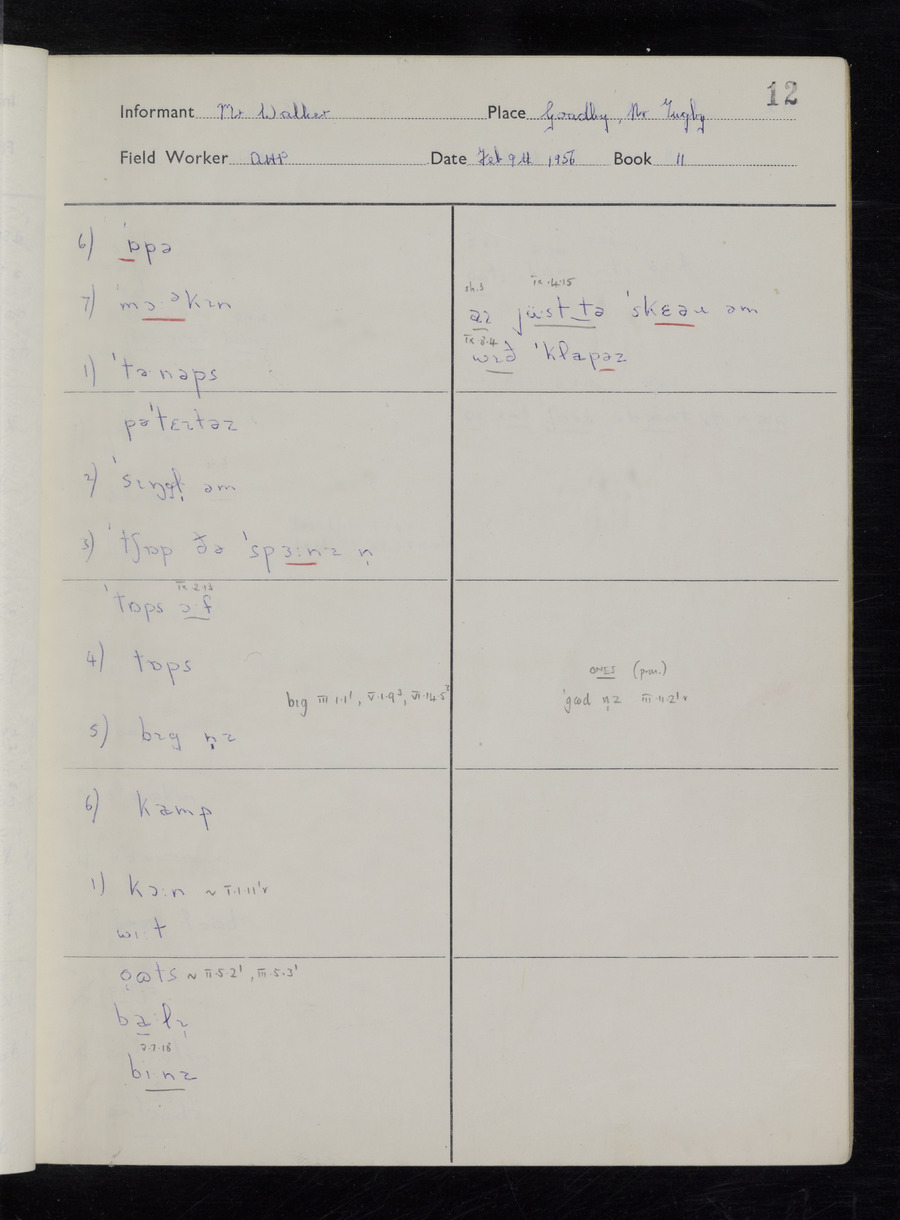 12
Informant Mr Walker Place Goadby, Nr Tugby
Field Worker AHP Date Feb 9th 1956 Book II
6) ˈɒpə
7) ˈmɔ·əkɪn
1) ˈtə·nəps
pəˈtɛɪtəz
2) ˈsɪŋgl̩ əm
3) ˈtʃɒp ðə ˈspɜ:nz n̩
IX·2·13
ˈtɒps ɔ·f
4) tɒps
big III·1·1¹, V·1·9³, VI·14·5³
5) bɪg n̩z
6) kamp
1) kɔ:n ~ I·1·11¹v
wi:t
o̞ɷts ~ II·5·2¹, III·5·3¹
ba·lɪ̞
2·7·18
bi:nz
sh.3 IX·4·15
aɪ jüst_tə ˈskɛəɹ əm
IX·2·4
wɪð ˈklapəz
ONES (pron.)
ˈgɷd n̩z III·11·2¹v